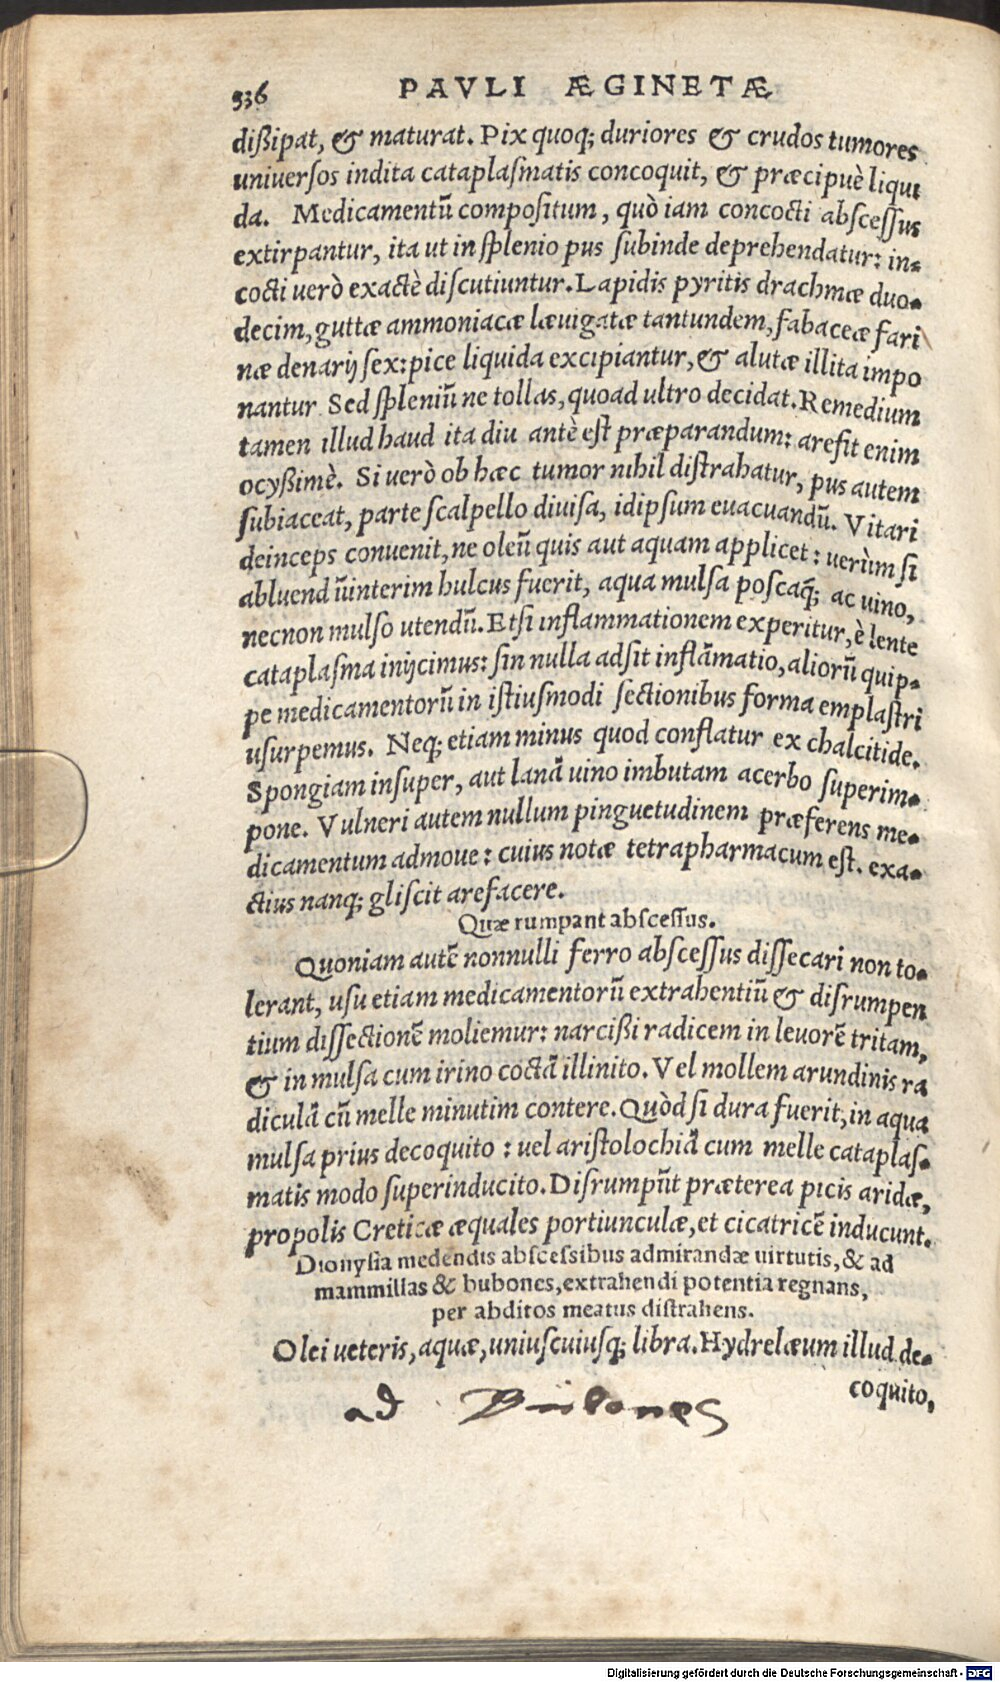 536 PAVLI ÆGINETÆ
dißipat, & maturat. Pix quoq; duriores & crudos tumores
uniuersos indita cataplasmatis concoquit, & præcipuè liqui
da. Medicamentũ compositum, quò iam concocti abscessus
extirpantur, ita ut in splenio pus subinde deprehendatur: in-
cocti uerò exactè discutiuntur. Lapidis pyritis drachmæ duo-
decim, guttæ ammoniacæ læuigatæ tantundem, fabaceæ fari
næ denarij sex: pice liquida excipiantur, & alutæ illita impo
nantur Sed spleniũ ne tollas, quoad ultro decidat. Remedium
tamen illud haud ita diu antè est præparandum: arefit enim
ocyßimè. Si uerò ob hæc tumor nihil distrahatur, pus autem
subiaceat, parte scalpello diuisa, idipsum euacuandũ. Vitari
deinceps conuenit, ne oleũ quis aut aquam applicet: uerùm si
abluend ũinterim hulcus fuerit, aqua mulsa poscaq́; ac uino,
necnon mulso utendũ. Etsi inflammationem experitur, è lente
cataplasma inijcimus: sin nulla adsit inflãmatio, aliorũ quip-
pe medicamentorũ in istiusmodi sectionibus forma emplastri
usurpemus. Neq; etiam minus quod conflatur ex chalcitide.
Spongiam insuper, aut lanã uino imbutam acerbo superim-
pone. Vulneri autem nullum pinguetudinem præferens me-
dicamentum admoue: cuius notæ tetrapharmacum est. exa-
ctius nanq; gliscit arefacere.
Quæ rumpant abscessus.
Quoniam autẽ nonnulli ferro abscessus dissecari non to-
lerant, usu etiam medicamentorũ extrahentiũ & disrumpen
tium dissectionẽ moliemur: narcißi radicem in leuorẽ tritam,
& in mulsa cum irino coctã illinito. Vel mollem arundinis ra
diculã cũ melle minutim contere. Quòd si dura fuerit, in aqua
mulsa prius decoquito: uel aristolochiã cum melle cataplas-
matis modo superinducito. Disrumpũt præterea picis aridæ,
propolis Creticæ æquales portiunculæ, et cicatricẽ inducunt.
Dionysia medendis abscessibus admirandæ uirtutis, & ad
mammillas & bubones, extrahendi potentia regnans,
per abditos meatus distrahens.
Olei ueteris, aquæ, uniuscuiusq; libra. Hydrelæum illud de-
coquito,
ad
Digitalisierung gefördert durch die Deutsche Forschungsgemeinschaft - DFG